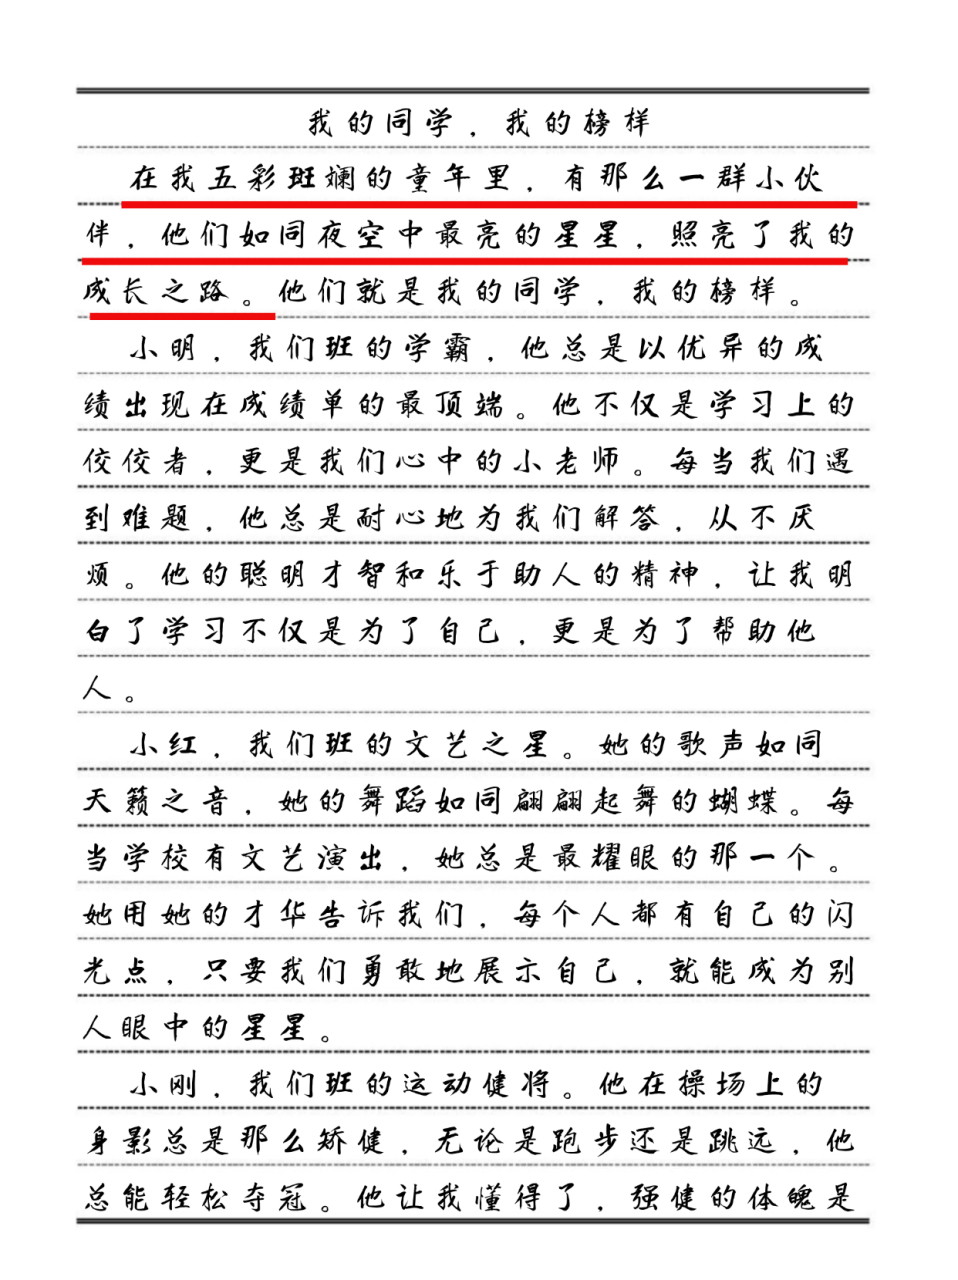 我的同学，我的榜样
在我五彩斑斓的童年里，有那么一群小伙
伴，他们如同夜空中最亮的星星，照亮了我的
成长之路。他们就是我的同学，我的榜样。
小明，我们班的学霸，他总是以优异的成
绩出现在成绩单的最顶端。他不仅是学习上的
佼佼者，更是我们心中的小老师。每当我们遇
到难题，他总是耐心地为我们解答，从不厌
烦。他的聪明才智和乐于助人的精神，让我明
白了学习不仅是为了自己，更是为了帮助他
人。
小红，我们班的文艺之星。她的歌声如同
天籁之音，她的舞蹈如同翩翩起舞的蝴蝶。每
当学校有文艺演出，她总是最耀眼的那一个。
她用她的才华告诉我们，每个人都有自己的闪
光点，只要我们勇敢地展示自己，就能成为别
人眼中的星星。
小刚，我们班的运动健将。他在操场上的
身影总是那么矫健，无论是跑步还是跳远，他
总能轻松夺冠。他让我懂得了，强健的体魄是